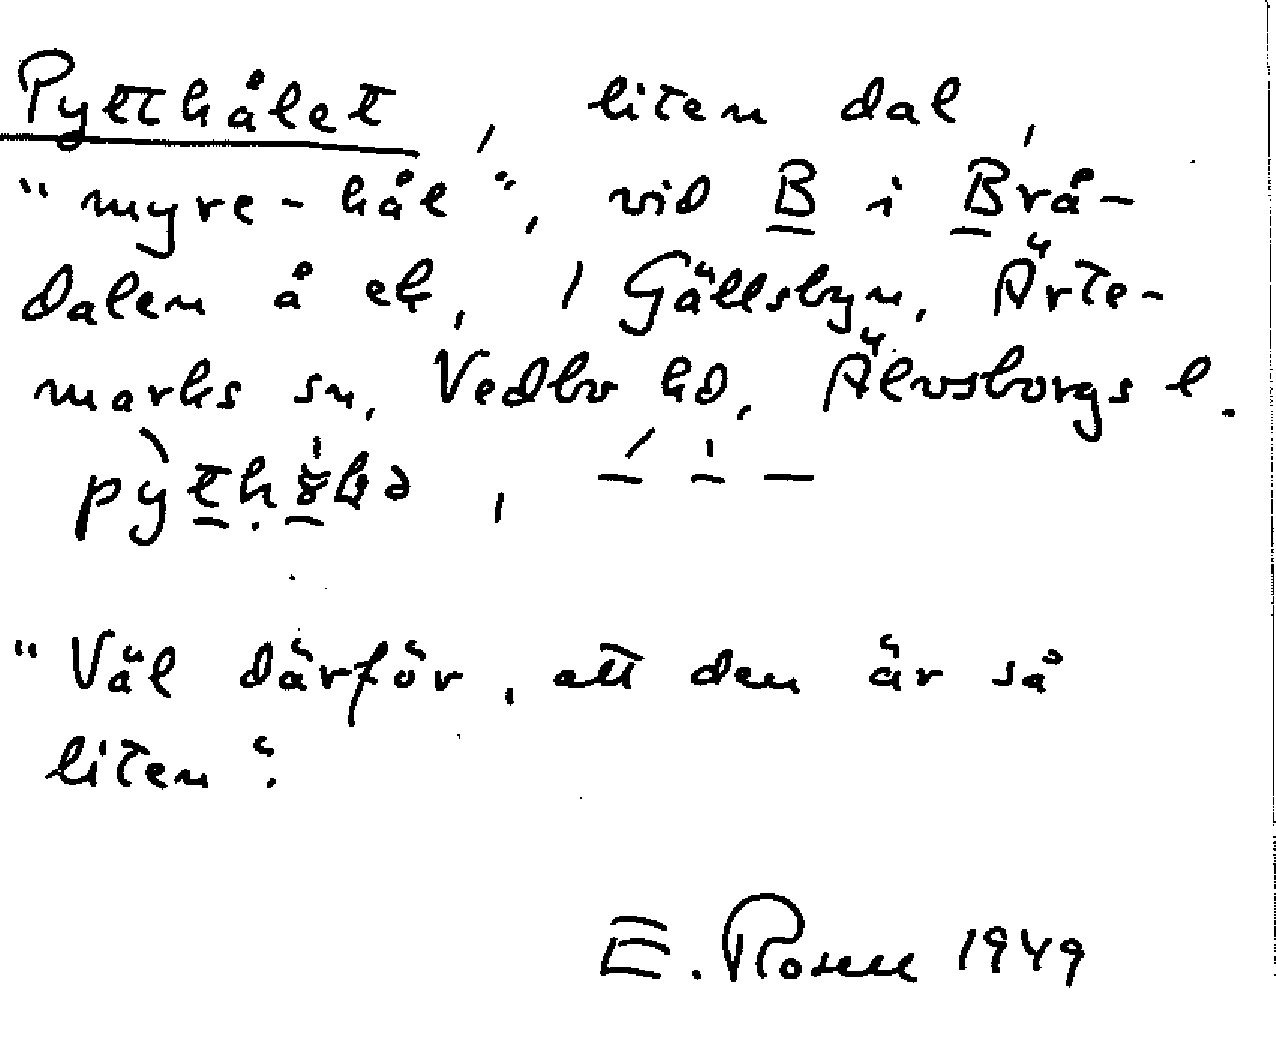 Pytthålet, liten dal,
"myre-hål", vid B i Brå-
dalen å ek, i Gällsbyn, Ärte-
marks sn, Vedbo hd, Älvsborgs l.
"Väl därför, att den är så
liten".
E. Rosell 1949